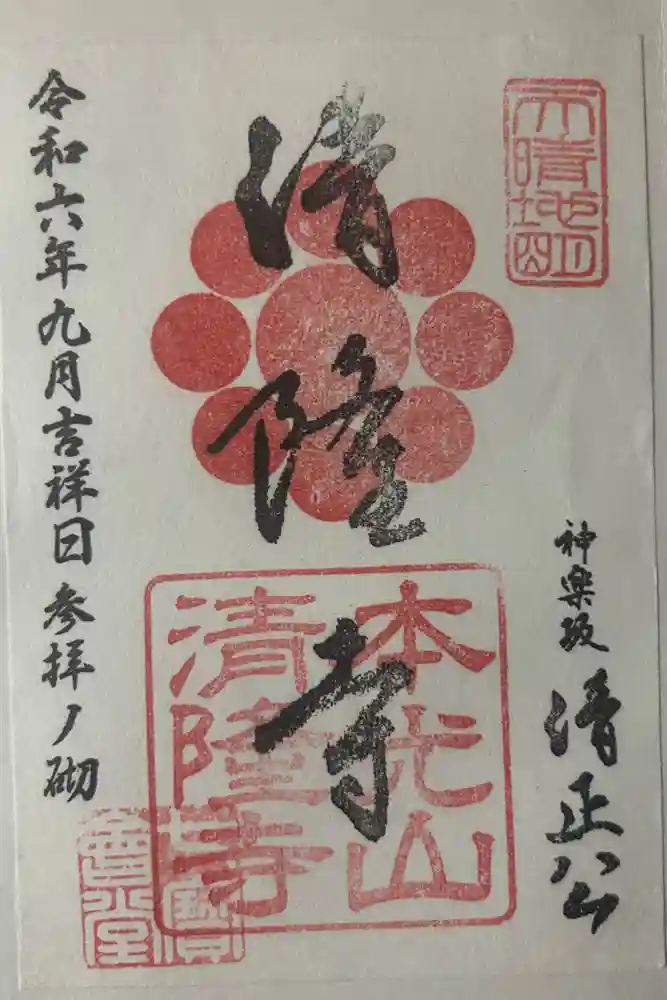 天晴地明
神楽坂 清正公
清隆寺
本光山
清隆寺
令和六年九月吉祥日 参拝ノ砌